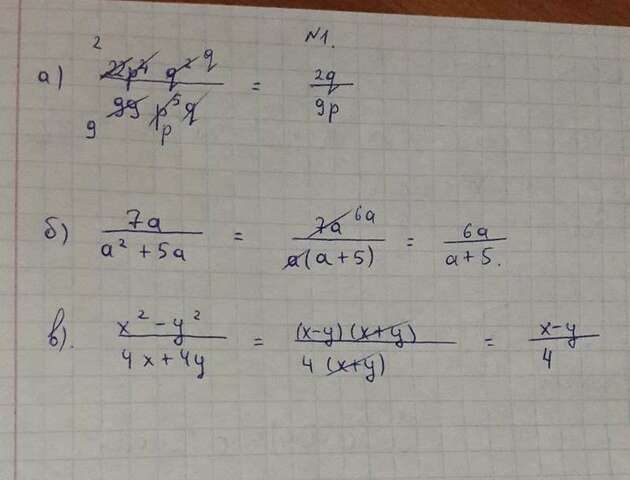 №1.
а) 22p⁴ q² / 99 p⁵ q = 2q / 9p
б) 7a / a² + 5a = 7a 6a / a(a+5) = 6a / a+5.
в). x² - y² / 4x + 4y = (x-y)(x+y) / 4(x+y) = x-y / 4